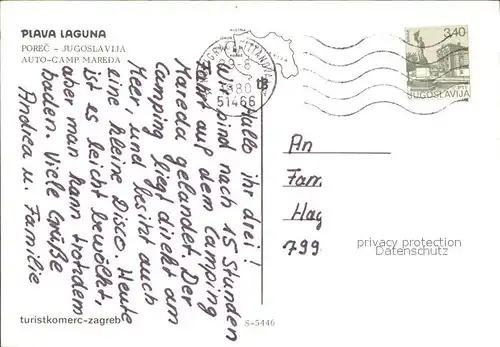 PLAVA LAGUNA
POREČ - JUGOSLAVIJA
AUTO-CAMP MAREDA
Hallo ihr drei!
Wir sind nach 15 Stunden
Fahrt auf dem Camping
Mareda gelandet. Der
Camping liegt direkt am
Meer, und besitzt auch
eine kleine Disco. Heute
ist es leicht bewölkt,
aber man kann trotzdem
baden. Viele Grüße
Andrea u. Familie
1980
51466
3,40
PTT
JUGOSLAVIJA
An
Fam.
Hag
799
privacy protection
Datenschutz
turistkomerc-zagreb
S-5446